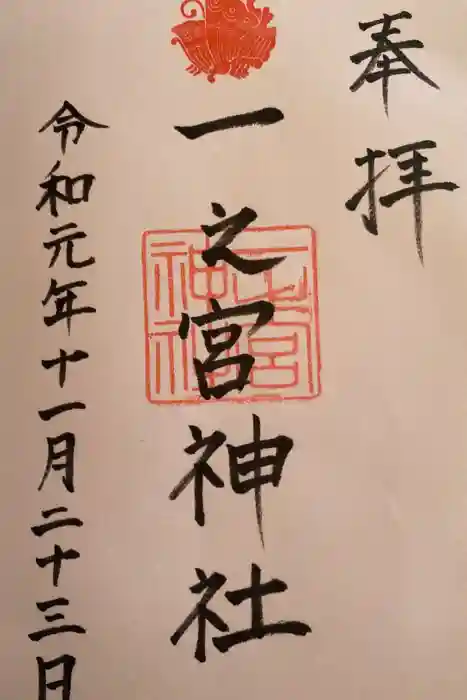 奉拝
一之宮神社
一之宮
神社
令和元年十一月二十三日